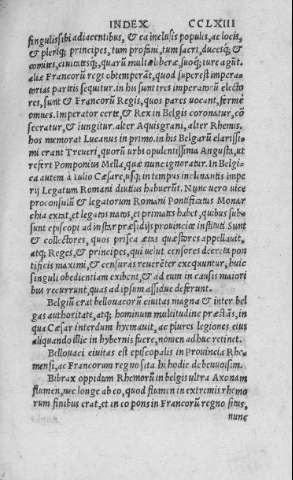 INDEX CCLXIII
singulis sibi adiacentibus, & ea inclusis populis, ac locis,
& pleriq; principes, tum profani, tum sacri, ducesq; &
comites, ciuitatesq;, quarũ multæ liberæ, suoq; iure agũt.
aliæ Francorũ regi obtemperãt, quod superest impera-
torias partis sequitur. in his sunt tres imperatorũ electo
res, sunt & Francorũ Regis, quos pares uocant, ferme
omnes. imperator certe, & Rex in Belgis coronatur, cõ
secratur, & iungitur. alter Aquisgrans, alter Rhemis.
hos memorat Lucanus in primo. in his Belgarũ clarissi-
mi erant Treueri, quorũ urbs opulentissima Augusta, ut
refert Pomponius Mella, quæ nunc ignoratur. In Belgi-
ca autem à Iulio Cæsare, usq; in tempus inclinantis impe
rij Legatum Romani diutius habuerũt. Nunc uero uice
proconsulũ & legatorum Romani Pontificatus Monar
chia exixt, et legatos natos, et primates habet, quibus sub
sunt episcopi ad instar præsidijs prouinciæ instituti Sunt
& collectores, quos prisca ætas quæstores appellauit,
atq; Reges, & principes, qui uelut censores decreta pon
tificis maximi, & censuras reuerēter exequuntur, huic
singuli obedientiam exibent, & ad eum in causis maiori
bus recurrunt, quas ad ipsum assidue deferunt.
Belgiũ erat bellouacorũ ciuitas magna & inter bel
gas authoritate, atq; hominum multitudine præstãs, in
qua Cæsar interdum hyemauit, ac plures legiones eius
aliquando illic in hybernis fuere, nomen adhuc retinet.
Bellouaci ciuitas est episcopalis in Prouincia Rhe-
mensi, ac Francorum regno sita. hi hodie de beuuoisim.
Bibrax oppidum Rhemorũ in belgis ultra Axonam
flumen, nec longe ab eo, quod flumen in extremis rhemo
rum finibus erat, et in eo pons in Francorũ regno situs,
nunc